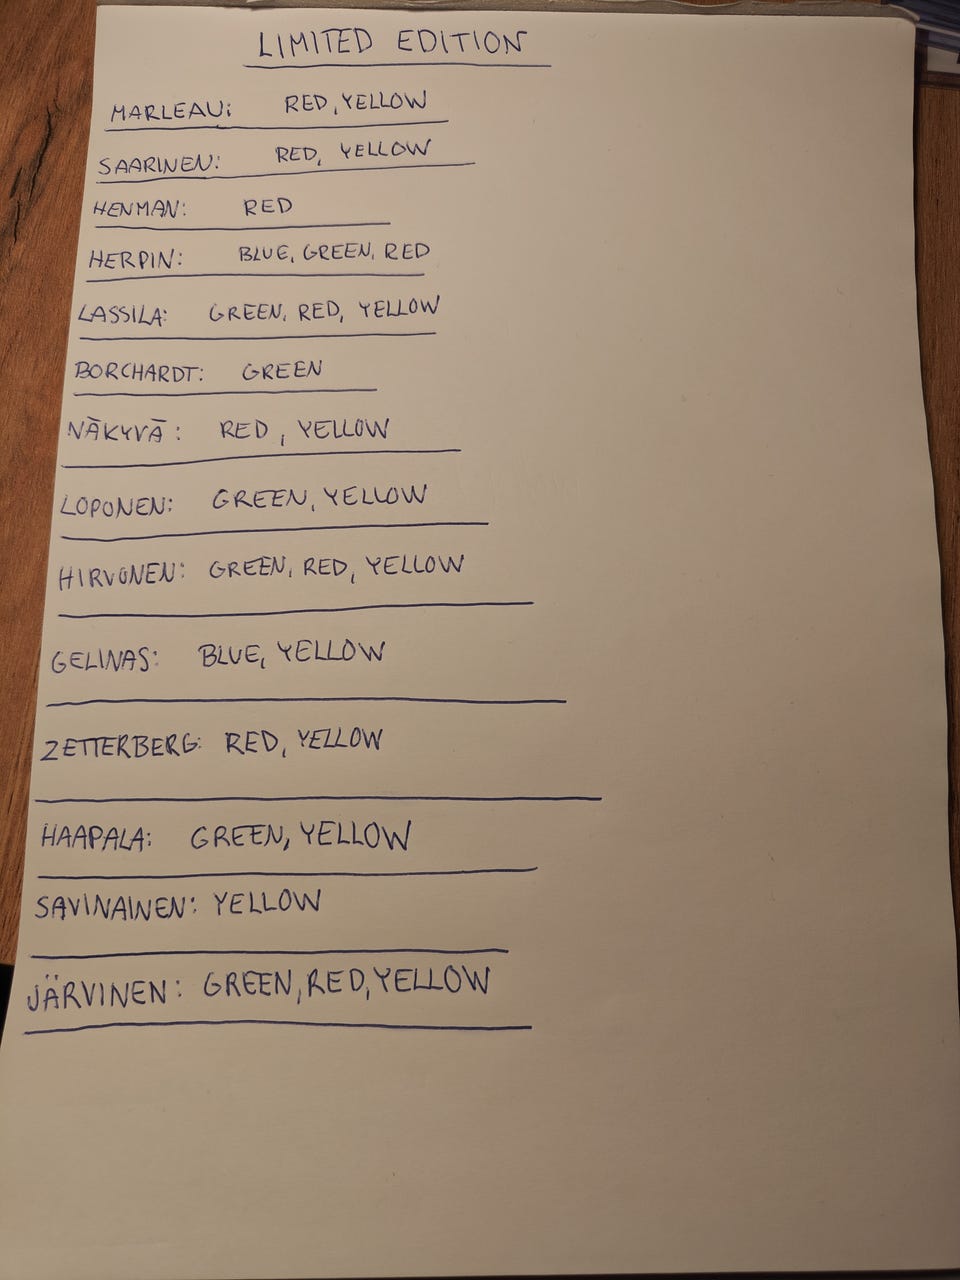 LIMITED EDITION
MARLEAU: RED, YELLOW
SAARINEN: RED, YELLOW
HENMAN: RED
HERPIN: BLUE, GREEN, RED
LASSILA: GREEN, RED, YELLOW
BORCHARDT: GREEN
NÄKYVÄ: RED, YELLOW
LOPONEN: GREEN, YELLOW
HIRVONEN: GREEN, RED, YELLOW
GELINAS: BLUE, YELLOW
ZETTERBERG: RED, YELLOW
HAAPALA: GREEN, YELLOW
SAVINAINEN: YELLOW
JÄRVINEN: GREEN, RED, YELLOW